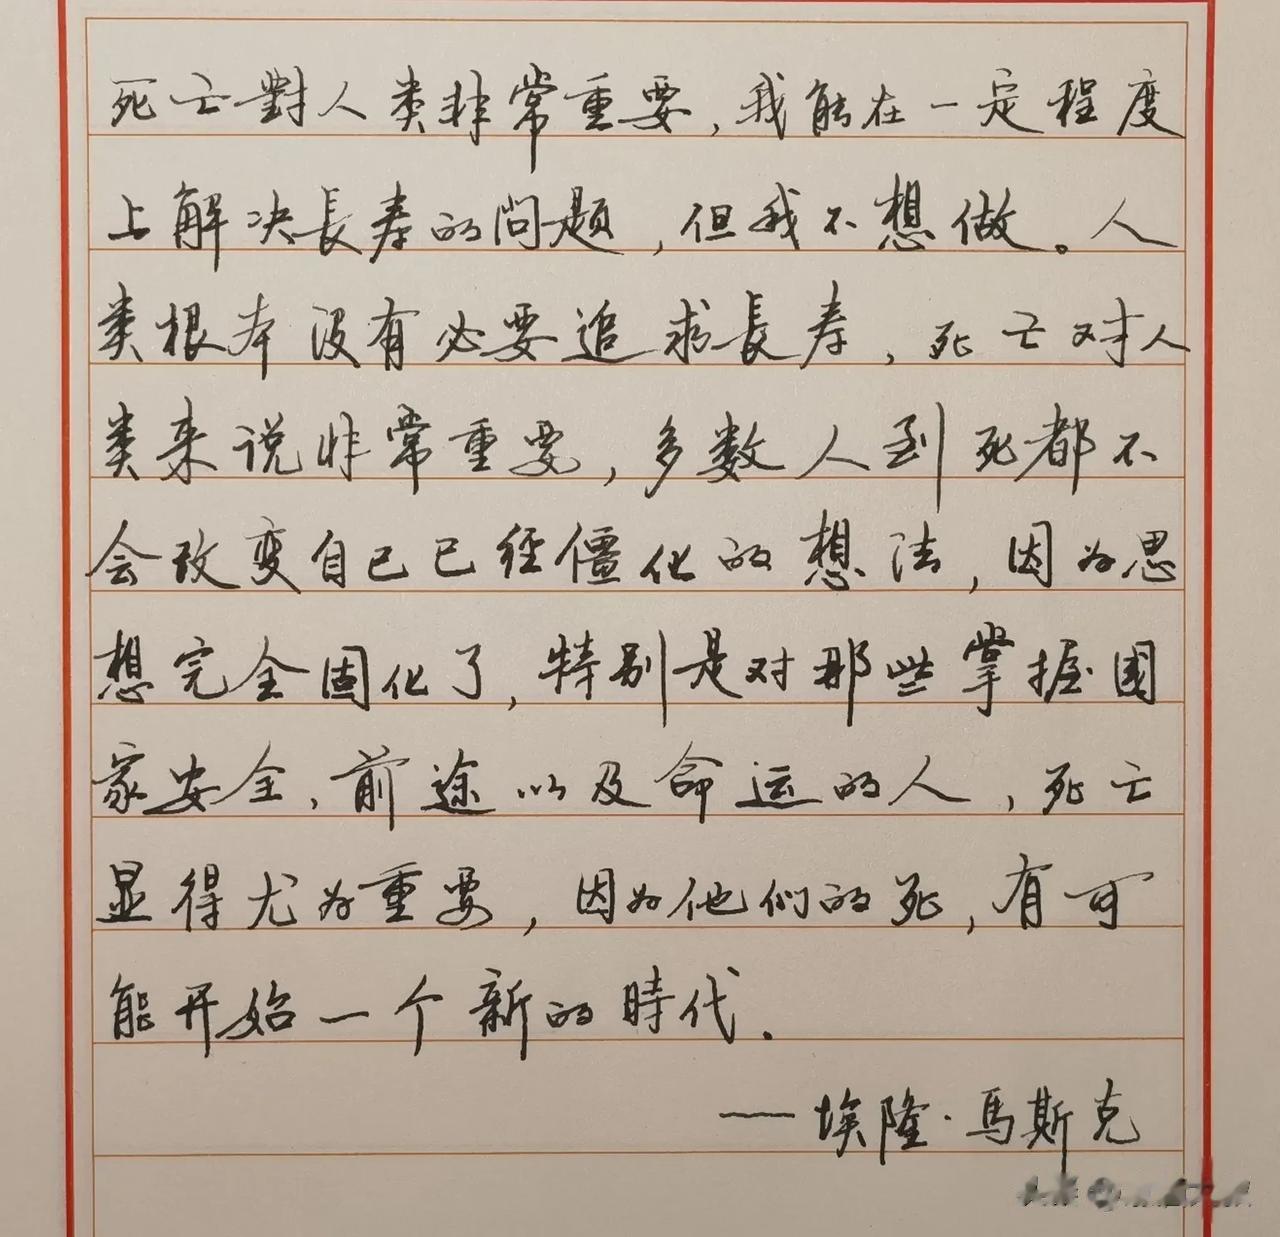 死亡對人类非常重要，我能在一定程度
上解决長寿的问题，但我不想做。人
类根本没有必要追求長寿，死亡对人
类来说非常重要，多数人到死都不
会改变自己已经僵化的想法，因为思
想完全固化了，特别是对那些掌握國
家安全、前途以及命运的人，死亡
显得尤为重要，因为他们的死，有可
能开始一个新的時代.
——埃隆·馬斯克